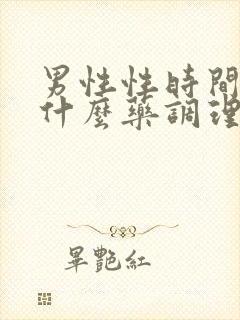 男性性時間
什麼藥調理
畢艷紅